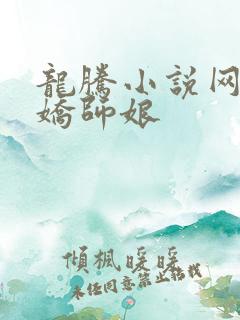 龍騰小説网
嬌師娘
傾楓暖暖
未经同意禁止转载